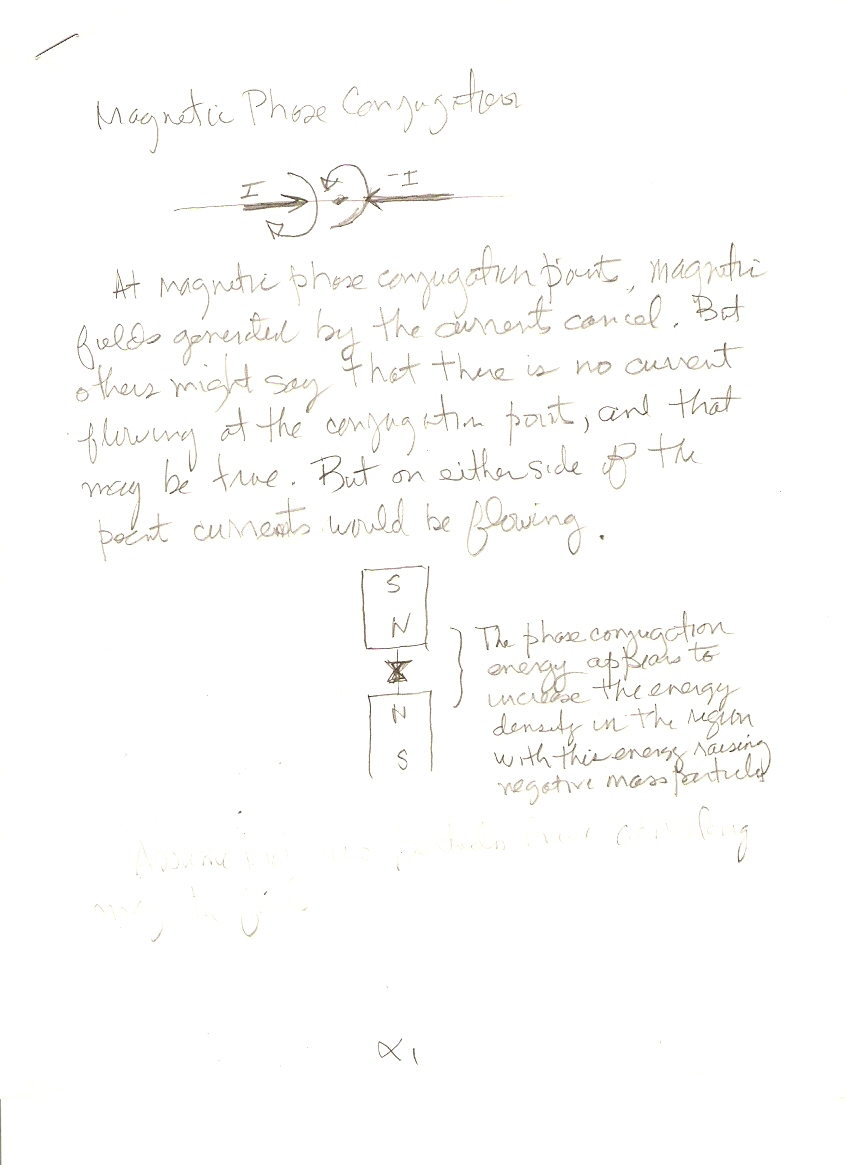 Magnetic Phase Conjugation
I
-I
At magnetic phase conjugation points, magnetic
fields generated by the currents cancel. But
others might say that there is no current
flowing at the conjugation point, and that
may be true. But on either side of the
point currents would be flowing.
S
N
N
S
The phase conjugation
energy appears to
increase the energy
density in the region
with this energy raising
negative mass particles
Assume
α1